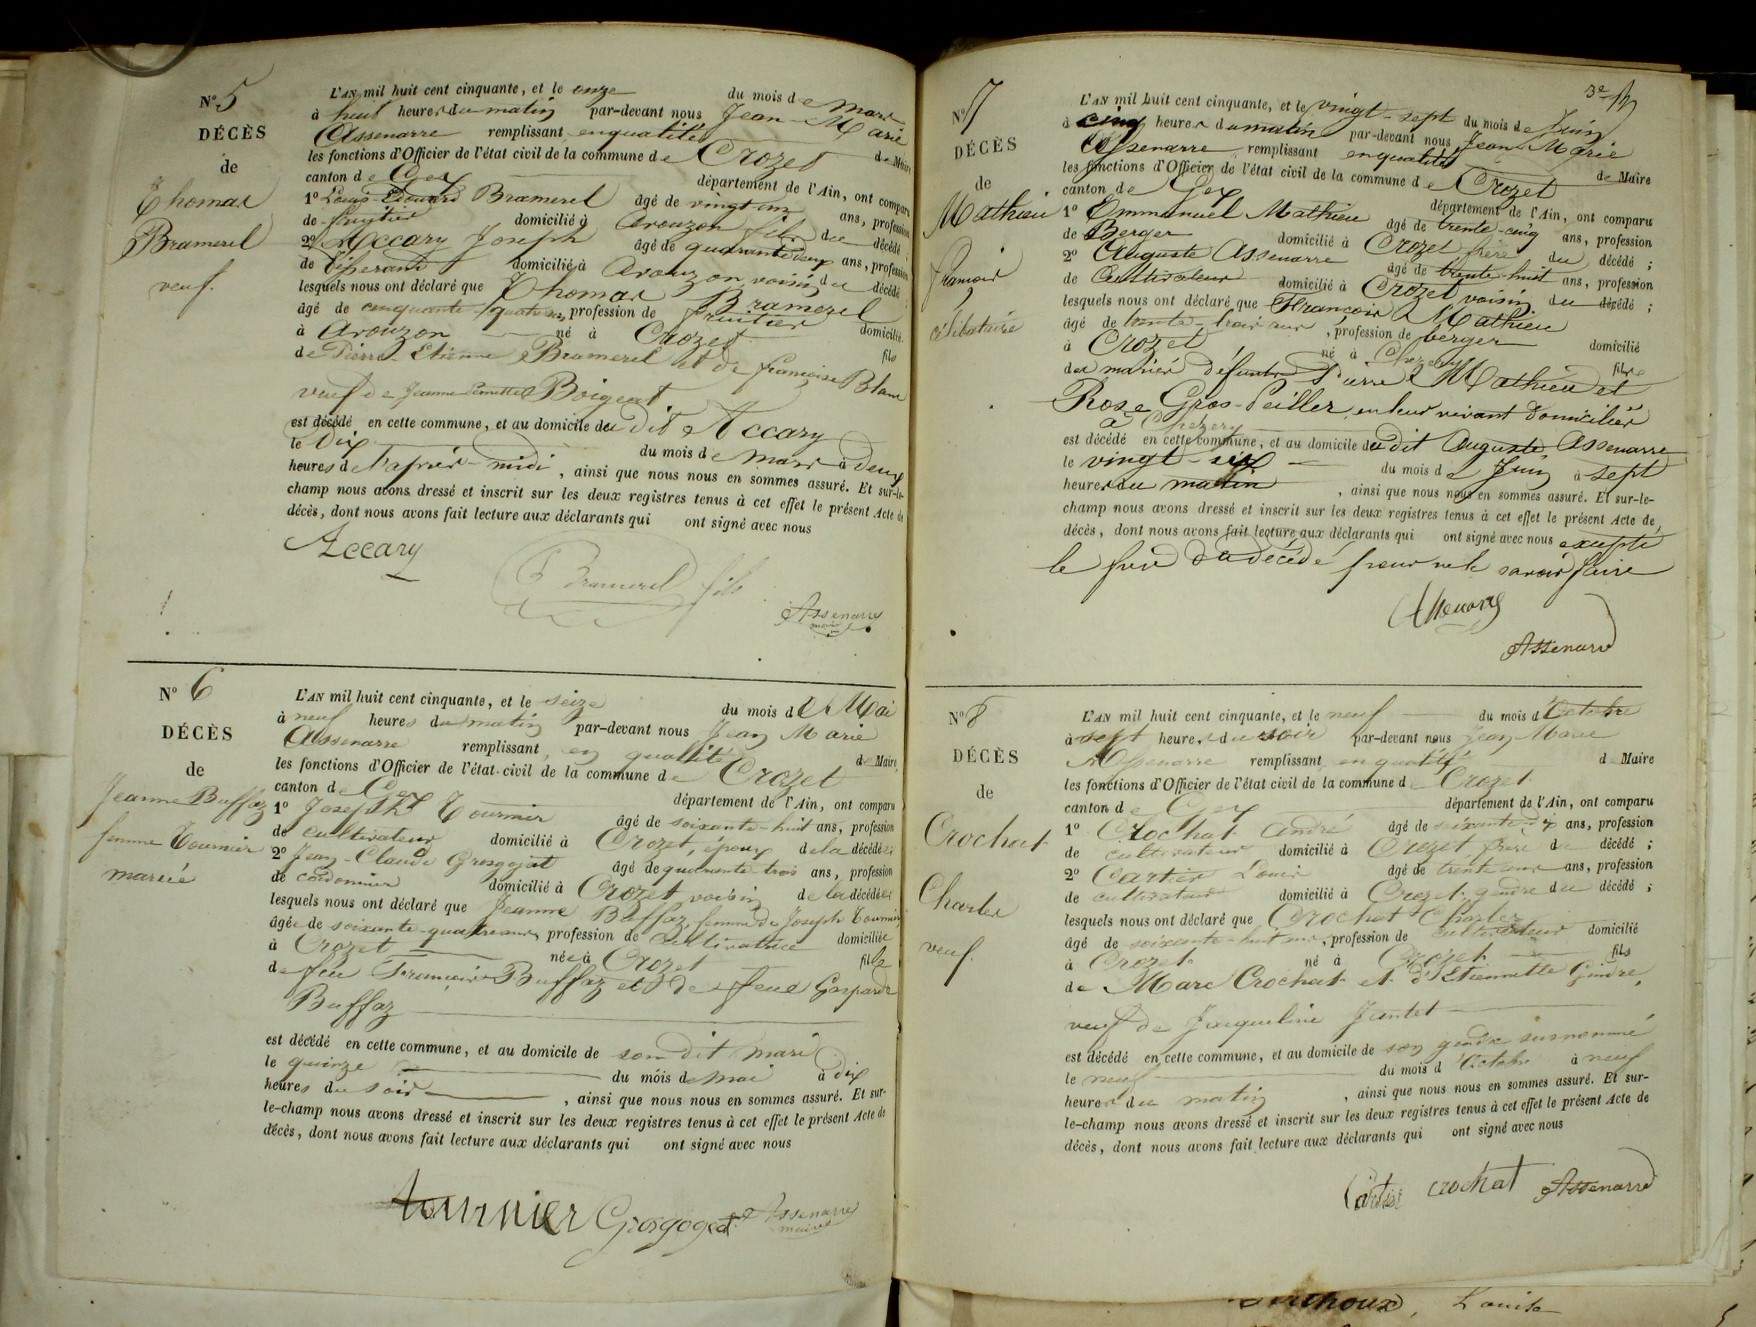 N° 5
DÉCÈS
de
Thomas
Bramerel
veuf.
L'AN mil huit cent cinquante, et le onze du mois de mars
à huit heures du matin par-devant nous Jean-Marie
Assenarre remplissant en qualité de Maire
les fonctions d'Officier de l'état civil de la commune de Crozet
canton de Gex département de l'Ain, ont comparu
1° Louis Edouard Bramerel âgé de vingt un ans, profession
de fruitier domicilié à Avouzon fils du décédé ;
2° Accary Joseph âgé de quarante deux ans, profession
de domicilié à Avouzon, voisin du décédé ;
lesquels nous ont déclaré que Thomas Bramerel
âgé de cinquante-quatre ans, profession de fruitier domicilié
à Avouzon né à Crozet fils
de Pierre-Etienne Bramerel et de françoise Blanc
veuf de Jeanne Boigeat
est décédé en cette commune, et au domicile du dit Accary
le Dix du mois de mars à deux
heures de l'après-midi , ainsi que nous nous en sommes assuré. Et sur-le-
champ nous avons dressé et inscrit sur les deux registres tenus à cet effet le présent Acte de
décès, dont nous avons fait lecture aux déclarants qui ont signé avec nous
Accary
Bramerel fils
Assenarre
maire
N° 6
DÉCÈS
de
Jeanne Buffaz
femme Tournier
mariée
L'AN mil huit cent cinquante, et le seize du mois de Mai
à neuf heures du matin par-devant nous Jean Marie
Assenarre remplissant, en qualité de Maire,
les fonctions d'Officier de l'état-civil de la commune de Crozet
canton de Gex département de l'Ain, ont comparu
1° Joseph Tournier âgé de soixante-huit ans, profession
de cultivateur domicilié à Crozet, époux de la décédée ;
2° Jean-Claude Grosgojat âgé de quarante trois ans, profession
de cordonnier domicilié à Crozet voisin de la décédée ;
lesquels nous ont déclaré que Jeanne Buffaz femme de Joseph Tournier
âgée de soixante-quatre ans, profession de cultivatrice domiciliée
à Crozet née à Crozet fille
de feu François Buffaz et de feue Gasparde
Buffaz
est décédé en cette commune, et au domicile de son dit mari
le quinze du mois de mai à dix
heures du soir , ainsi que nous nous en sommes assuré. Et sur-
le-champ nous avons dressé et inscrit sur les deux registres tenus à cet effet le présent Acte de
décès, dont nous avons fait lecture aux déclarants qui ont signé avec nous
tournier Grosgogeat Assenarre
maire
3e
N° 7
DÉCÈS
de
Mathieu
François
célibataire
L'AN mil huit cent cinquante, et le vingt-sept du mois de Juin
à cinq heures du matin par-devant nous Jean-Marie
Assenarre remplissant en qualité de Maire
les fonctions d'Officier de l'état civil de la commune de Crozet
canton de Gex département de l'Ain, ont comparu
1° Emmanuel Mathieu âgé de trente-cinq ans, profession
de Berger domicilié à Crozet frère du décédé ;
2° Auguste Assenarre âgé de trente-huit ans, profession
de Cultivateur domicilié à Crozet, voisin du décédé ;
lesquels nous ont déclaré que François Mathieu
âgé de trente-trois ans , profession de berger domicilié
à Crozet né à Chezery fils
des mariés défunts Pierre Mathieu et
Rose Gros-Peiller, en leur vivant domiciliés
à Chezery
est décédé en cette commune, et au domicile du dit Auguste Assenarre
le vingt-six du mois de Juin à sept
heures du matin , ainsi que nous nous en sommes assuré. Et sur-le-
champ nous avons dressé et inscrit sur les deux registres tenus à cet effet le présent Acte de
décès, dont nous avons fait lecture aux déclarants qui ont signé avec nous excepté
le frère du décédé pour ne le savoir faire
Assenarre
Assenarre
N° 8
DÉCÈS
de
Crochat
Charles
veuf.
L'AN mil huit cent cinquante, et le neuf du mois d'Octobre
à sept heures du soir par-devant nous Jean-Marie
Assenarre remplissant en qualité de Maire
les fonctions d'Officier de l'état civil de la commune de Crozet
canton de Gex département de l'Ain, ont comparu
1° Crochat André âgé de soixante-dix ans, profession
de cultivateur domicilié à Crozet frère du décédé ;
2° Cartier Louis âgé de trente ans, profession
de cultivateur domicilié à Crozet, gendre du décédé ;
lesquels nous ont déclaré que Crochat Charles
âgé de soixante-huit ans, profession de cultivateur domicilié
à Crozet né à Crozet fils
de Marc Crochat et d'Etiennette Gindre,
veuf de Jacqueline Jantet
est décédé en cette commune, et au domicile de son gendre surnommé
le neuf du mois d'Octobre à neuf
heures du matin , ainsi que nous nous en sommes assuré. Et sur-
le-champ nous avons dressé et inscrit sur les deux registres tenus à cet effet le présent Acte de
décès, dont nous avons fait lecture aux déclarants qui ont signé avec nous
Cartier crochat Assenarre
Louise